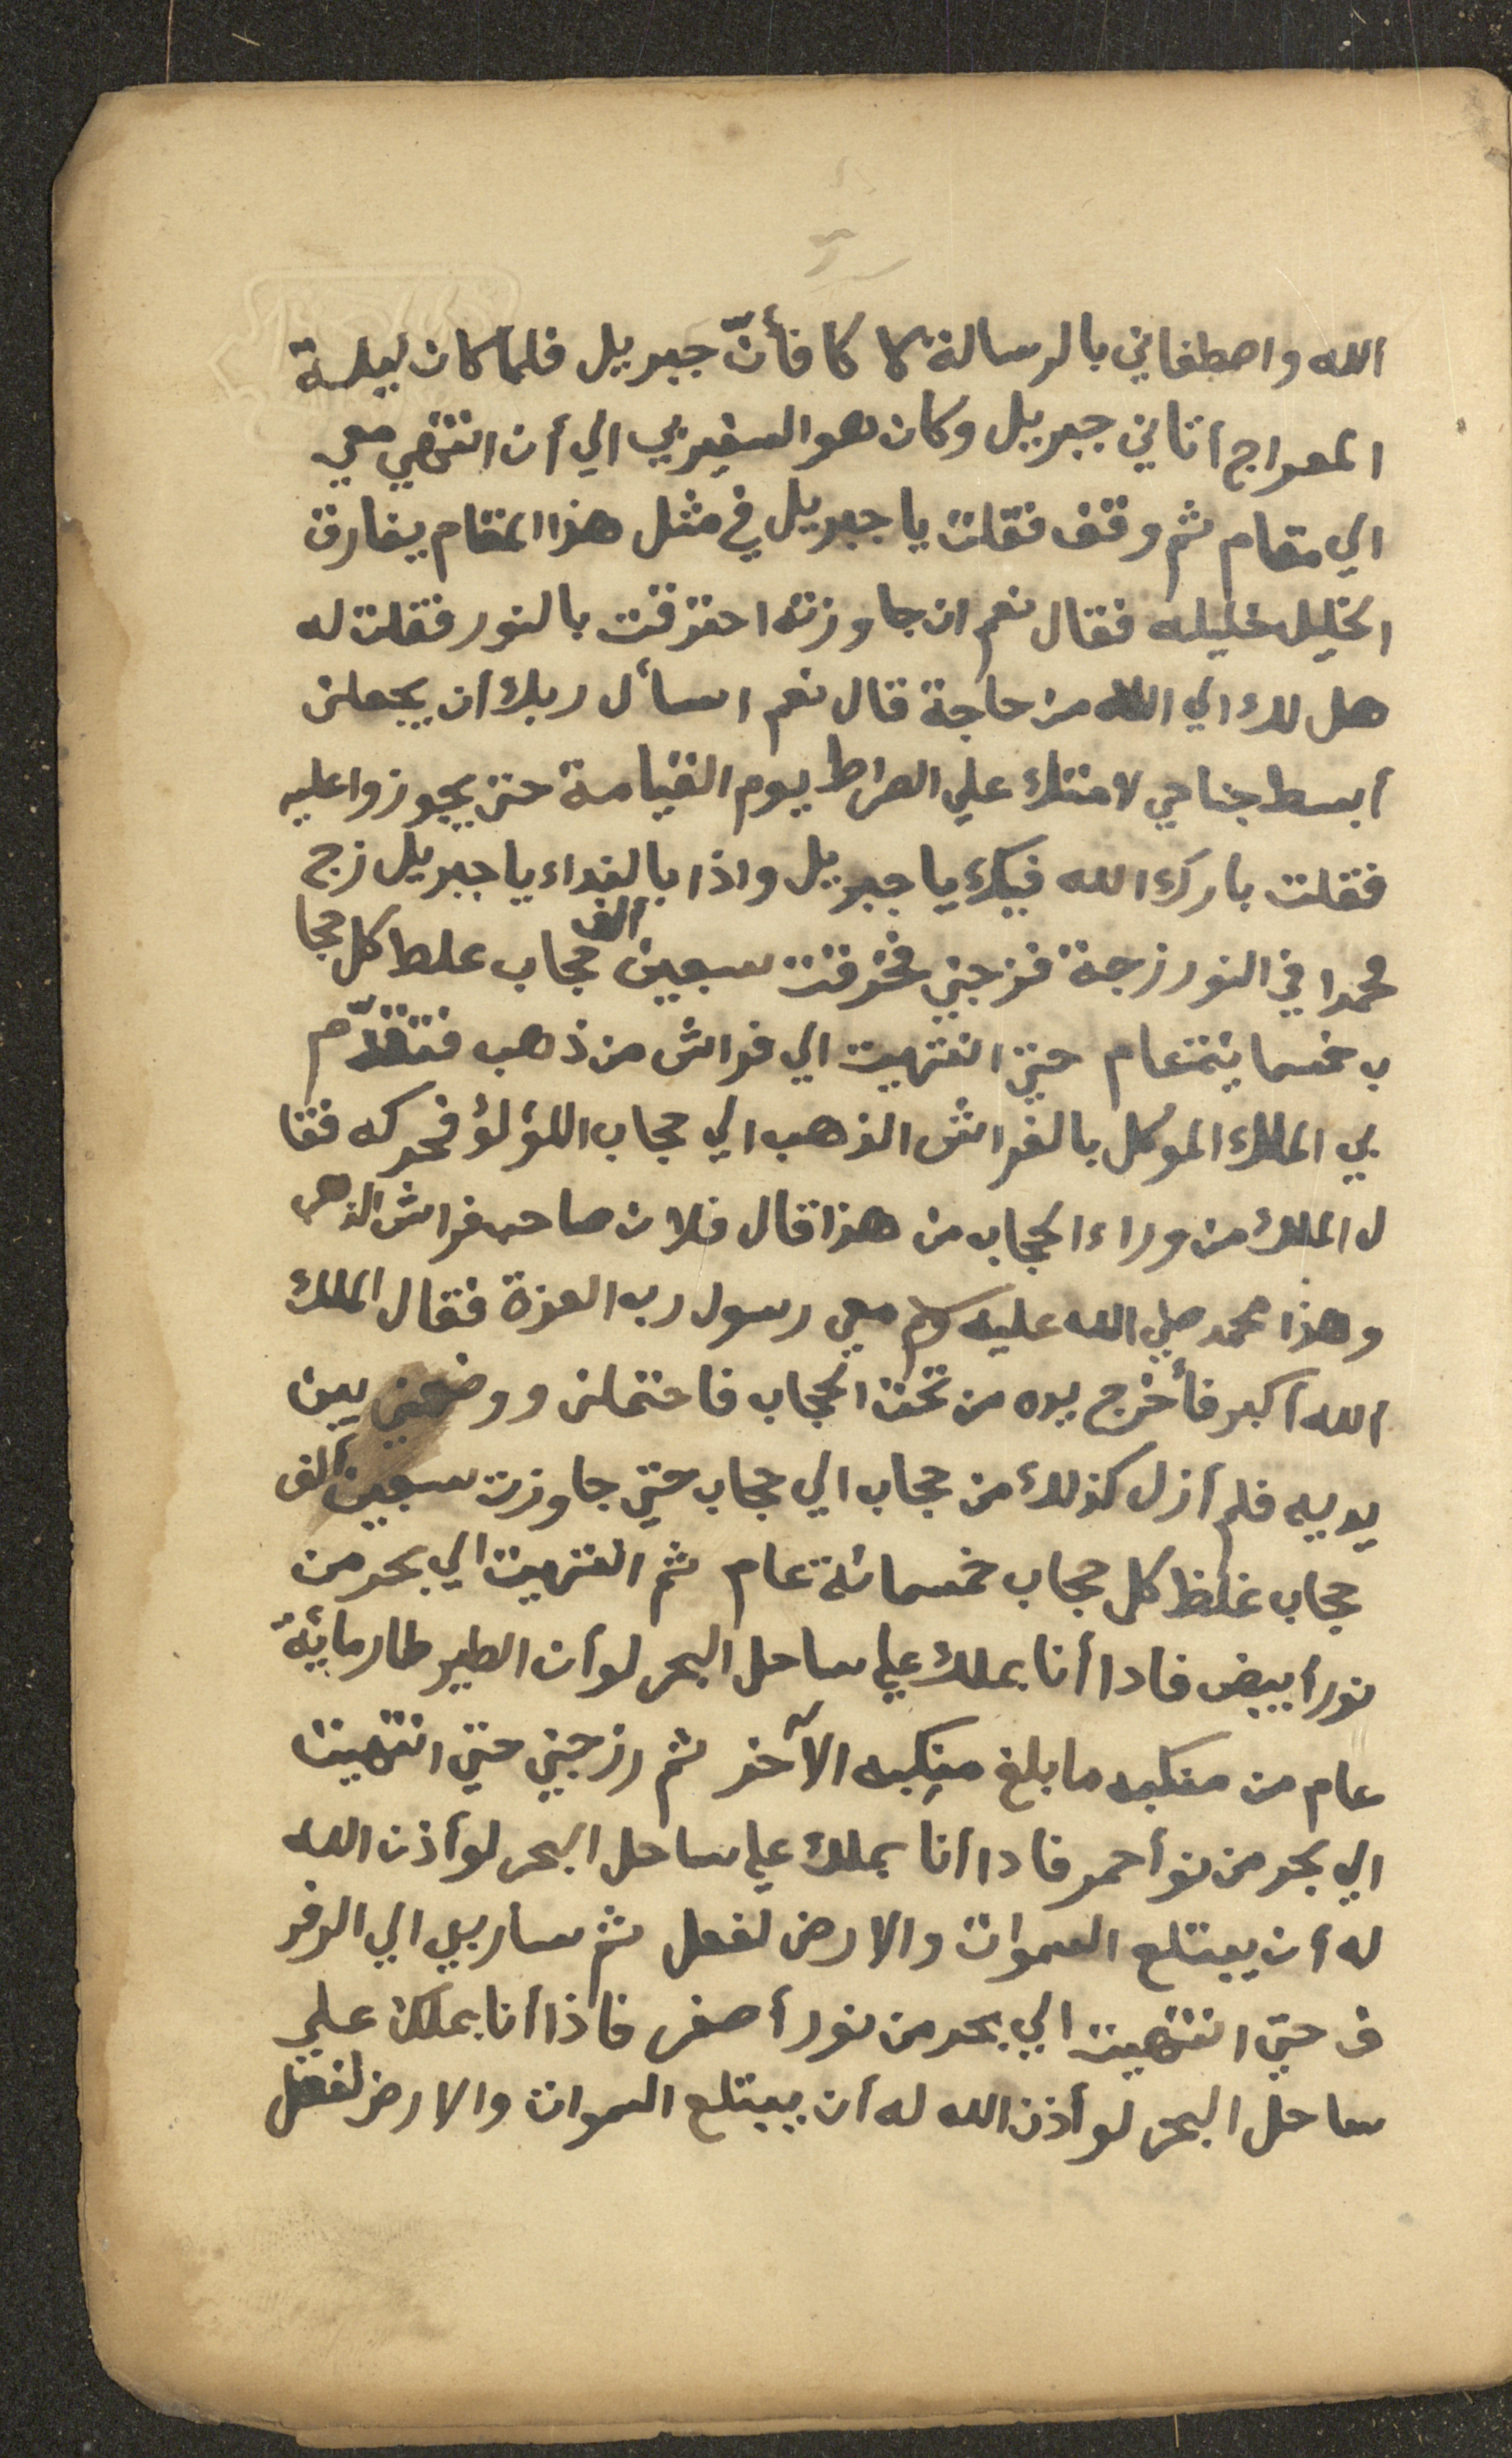 الله واصطفاني بالرسالة كا كافأنّ جبريل فلما كان ليلة
المعراج أتاني جبريل وكان هو السفيربي الي أن انتهي معي
الي مقام ثم وقف فقلت يا جبريل في مثل هذا المقام يفارق
الخليل خليله فقال نعم ان جاوزته احترقت بالنور فقلت له
هل لك الي الله من حاجة قال نعم اسأل ربك أن يجعلن
أبسط جناحي لامتك علي الصراط يوم القيامة حتي يجوزوا عليه
فقلت بارك الله فيك يا جبريل واذا بالنداء يا جبريل زج
محمدا في النور زجة فزجني فخرقت سبعين ألف حجاب غلط كل حجا
ب خمسمائة عام حتي انتهيت الي فراش من ذهب فتقدّم
بي الملك الموكل بالفراش الذهب الي حجاب اللؤلؤ فحركه فقا
ل الملك من وراء الحجاب من هذا قال فلان صاحب فراش الذهب
وهذا محمد صلي الله عليه وسلم معي رسول رب العزة فقال الملك
الله أكبر فأخرج يده من تحت الحجاب فاحتملن ووضعني بين
يديه فلم أزل كذلك من حجاب الي حجاب حتي جاوزت سبعين ألف
حجاب غلظ كل حجاب خمسمائة عام ثم انتهيت الي بحر من
نور أبيض فادا أنا بملك علي ساحل البحر لو أن الطير طار مائة
عام من منكبه ما بلغ منكبه الآخر ثم رزجني حتي انتهيت
الي بحر من نو أحمر فادا أنا بملك علي ساحل البحر لو أذن الله
له أن يبتلع السموات والارض لفعل ثم سار بي الي الرفر
ف حتي انتهيت الي بحر من نور أصفر فاذا أنا بملك علي
ساحل البحر لو أذن الله له أن يبتلع السموات والارض لفعل